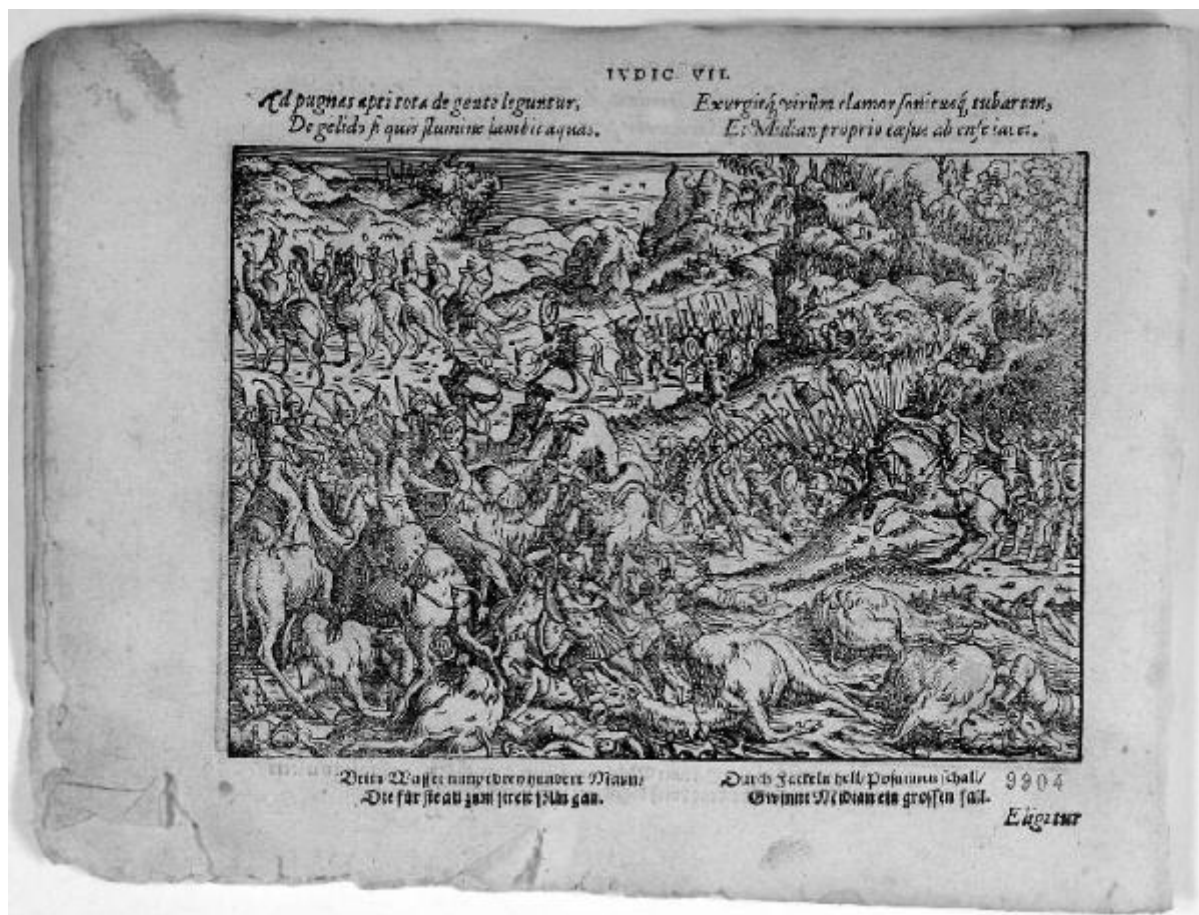 IVDIC VII.
Ad pugnas apti tota de gente leguntur,
De gelido si quis flumine lambit aquas.
Exurgitq́ virûm clamor sonitusq́ tubarum,
Et Midian proprio cæsus ab ense iacet.
Beim Wasser nimpt drey hundert Mann/
Die für sie all zum streit gan.
Durch Fackeln hell/ Posaunen schall/
Gwinnt Midian ein grossen fall.
9904
Eligitur